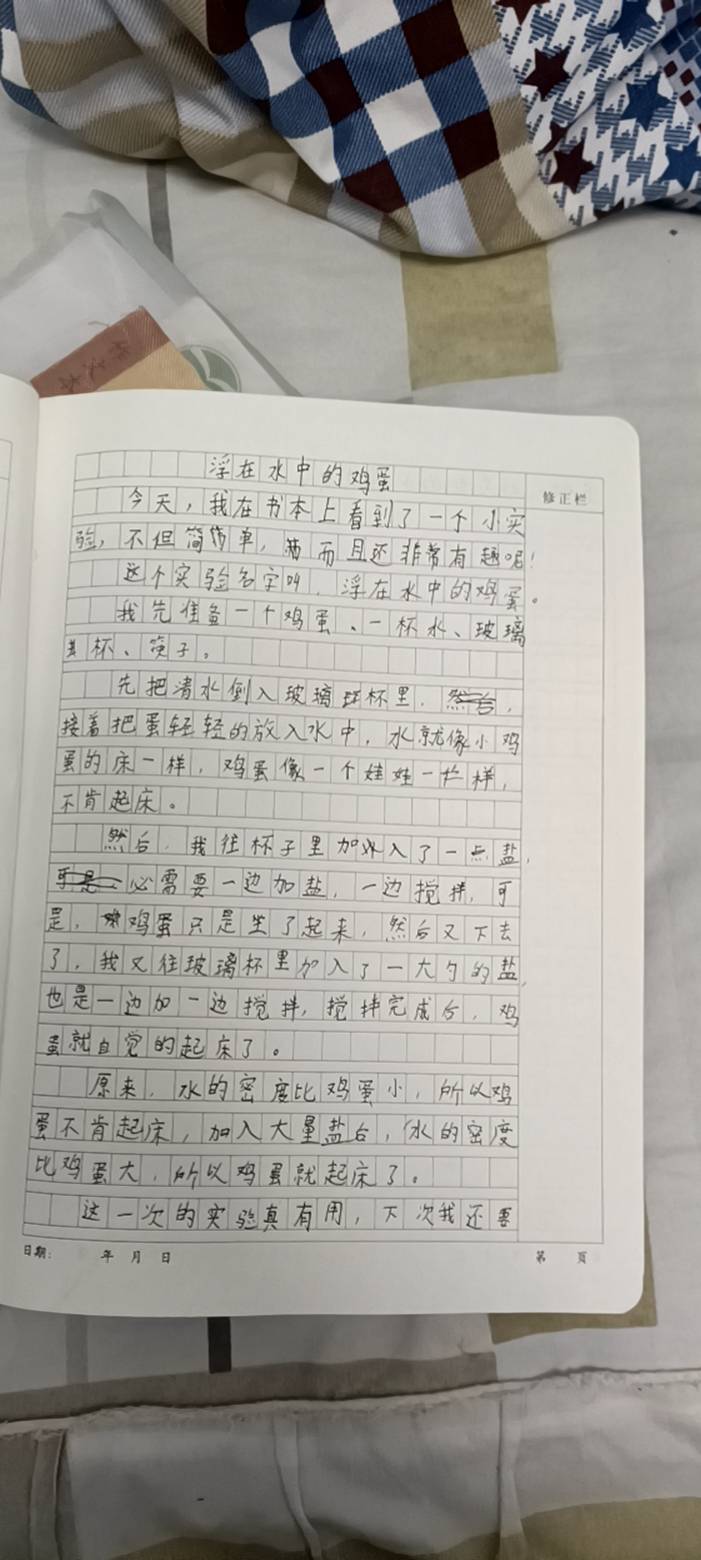 作文本
浮在水中的鸡蛋
修正栏
今天，我在书本上看到了一个小实
验，不但简单，而且还非常有趣呢！
这个实验名字叫，浮在水中的鸡蛋。
我先准备一个鸡蛋、一杯水、玻璃
杯、筷子。
先把清水倒入玻璃杯里，
接着把蛋轻轻的放入水中，水就像小鸡
蛋的床一样，鸡蛋像一个娃娃一样，
不肯起床。
然后，我往杯子里加入了一点盐，
必需要一边加盐，一边搅拌，可
是，鸡蛋只是坐了起来，然后又下去
了，我又往玻璃杯里加入了一大勺的盐，
也是一边加一边搅拌，搅拌完成后，鸡
蛋就自觉的起床了。
原来，水的密度比鸡蛋小，所以鸡
蛋不肯起床，加入大量盐后，水的密度
比鸡蛋大，所以鸡蛋就起床了。
这一次的实验真有用，下次我还要
日期： 年 月 日 第 页